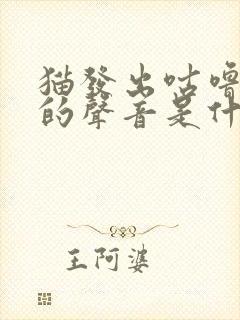 猫發出咕嚕
的聲音是什
王阿婆